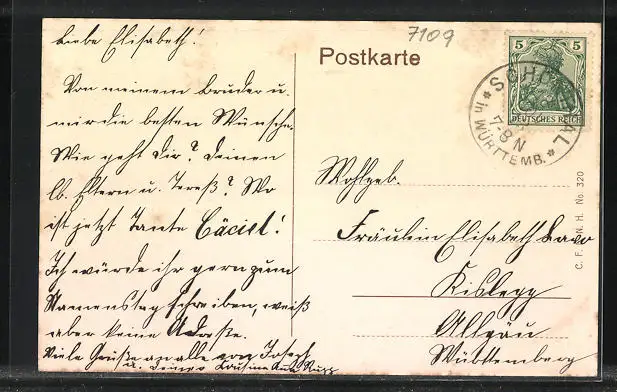 Liebe Elisabeth!
Von meinem Bruder u.
mir die besten Wünsche.
Wie geht Dir? Deinen
lb. Eltern u. Tereß? Wo
ist jetzt Tante Cäciel!
Ich würde ihr gern zum
Namenstag schreiben, weiß
aber keine Adreße.
Viele Grüße an alle von Joseph
u. Deiner Cousine
7109
Postkarte
5 5
DEUTSCHES REICH
in WÜRTTEMB.
7-8 N
Wohlgeb.
Fräulein Elisabeth
Kislegg
Allgäu
Württemberg
C. F. N. H. No 320